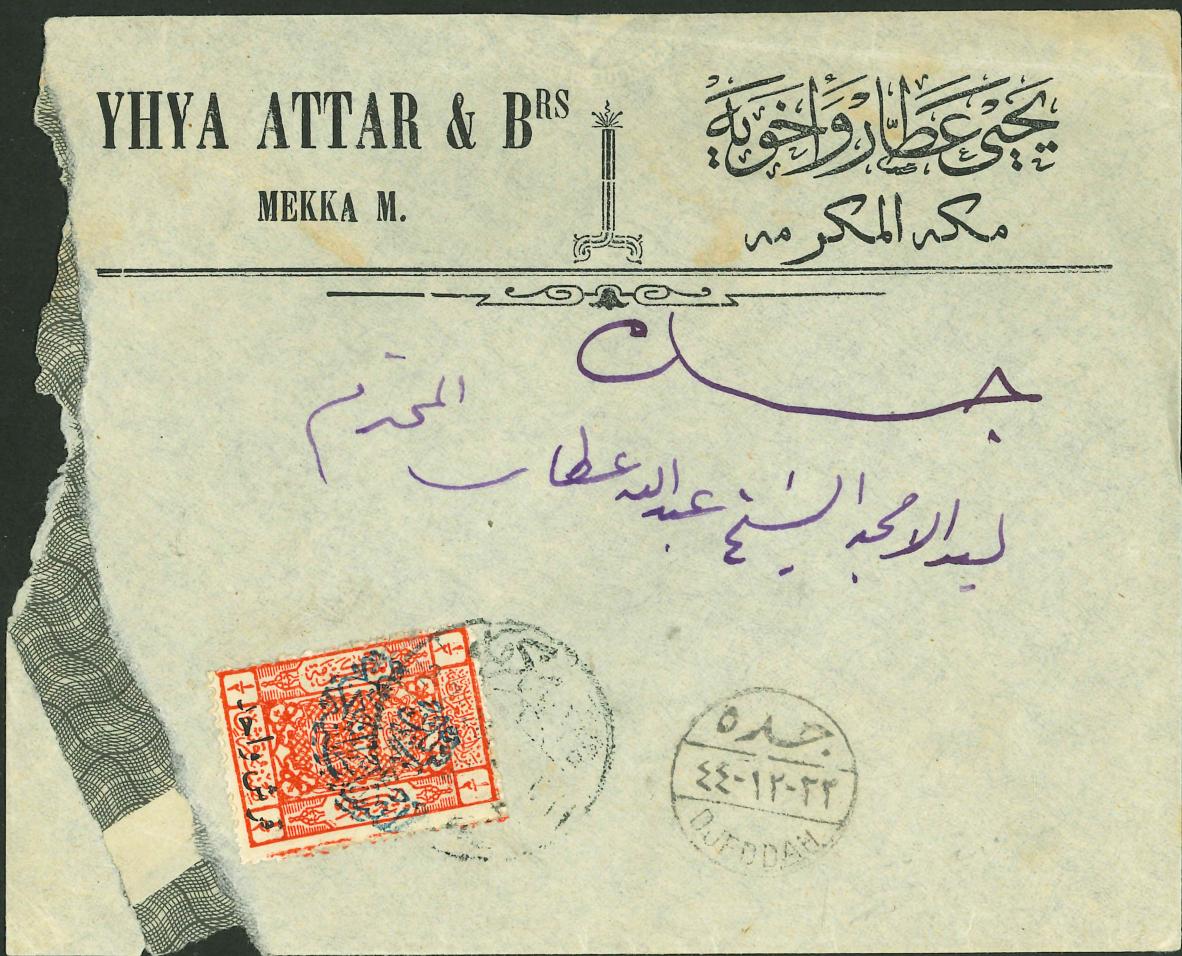 YHYA ATTAR & BRS
MEKKA M.
يحيى عطار واخويه
مكه المكرمه
جده
المحترم
لسيد الامجد الشيخ عبدالله عطار
قرش واحد
جده
٤٤-١٢-٢٢
DJEDDAH